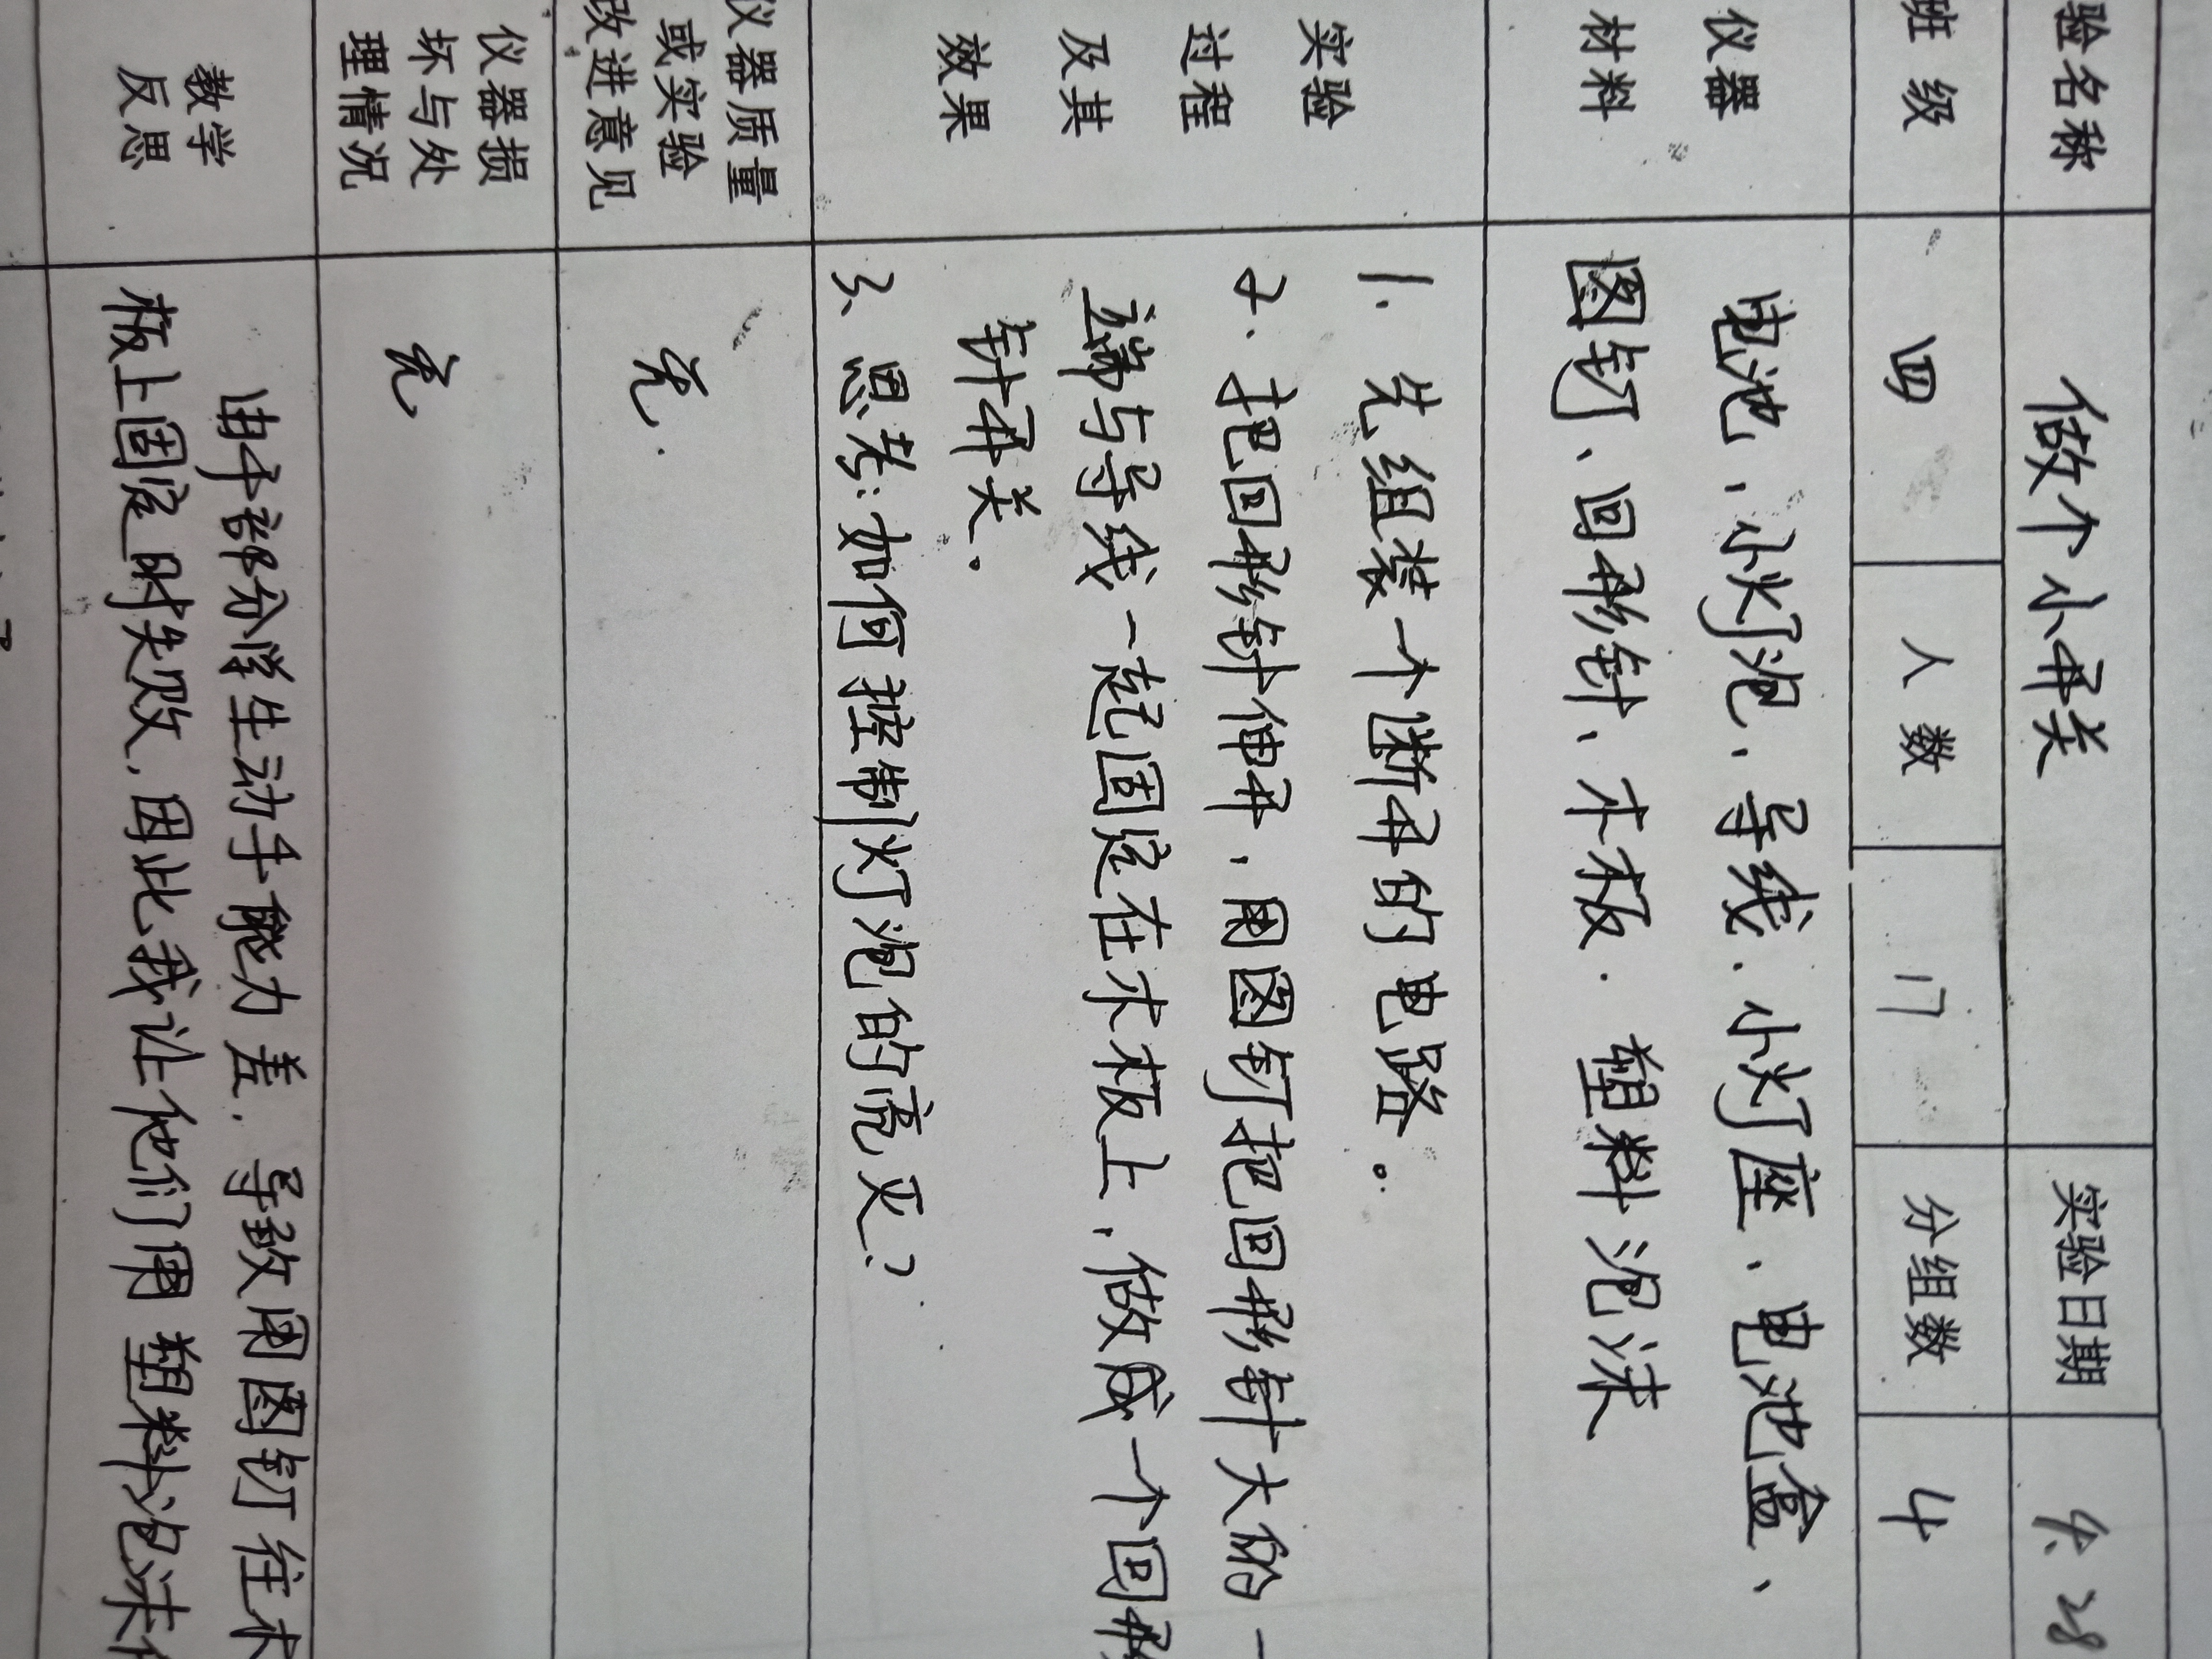 验名称 做个小开关 实验日期 4.28
班级 四 人数 17 分组数 4
仪器 电池、小灯泡、导线、小灯座、电池盒、
材料 图钉、回形针、木板、塑料泡沫
实验 1. 先组装一个断开的电路。
过程 2. 把回形针伸开，用图钉把回形针大的一
及其 端与导线一起固定在木板上，做成一个回形
效果 针开关。
3、思考：如何控制灯泡的亮灭？
仪器质量
或实验 无.
改进意见
仪器损
坏与处 无
理情况
教学 由于部分学生动手能力差，导致用图钉往木
反思 板上固定时失败，因此我让他们用塑料泡沫